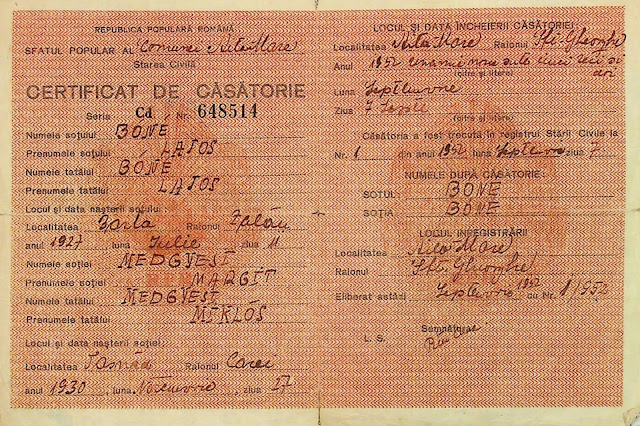 REPUBLICA POPULARĂ ROMÂNĂ
SFATUL POPULAR AL Comunei Aita Mare
Starea Civilă
CERTIFICAT DE CĂSĂTORIE
Seria Cd Nr. 648514
Numele soțului BÓNÉ
Prenumele soțului LAJOS
Numele tatălui BÓNÉ
Prenumele tatălui LAJOS
Locul și data nașterii soțului:
Localitatea Raionul Zalău
anul 1927 luna Iulie ziua 11
Numele soției MEDGYESI
Prenumele soției MARGIT
Numele tatălui MEDGYESI
Prenumele tatălui MIKLÓS
Locul și data nașterii soției:
Localitatea Raionul Carei
anul 1930, luna Noemvrie, ziua 27
LOCUL ȘI DATA ÎNCHEIERII CĂSĂTORIEI
Localitatea Aita Mare Raionul Sft. Gheorghe
Anul 1952 una mie nouă sute cinci zeci și
doi
(cifre și litere)
Luna Septemvrie
Ziua 7 șapte
(cifre și litere)
Căsătoria a fost trecută în registrul Stării Civile la
Nr. 1 din anul 1952 luna Septemvrie ziua 7
NUMELE DUPĂ CĂSĂTORIE:
SOȚUL BONE
SOȚIA BONE
LOCUL ÎNREGISTRĂRII
Localitatea Aita Mare
Raionul Sft. Gheorghe
Eliberat astăzi Septemvrie 1952 cu Nr. 1/952
Semnătura:
L. S.